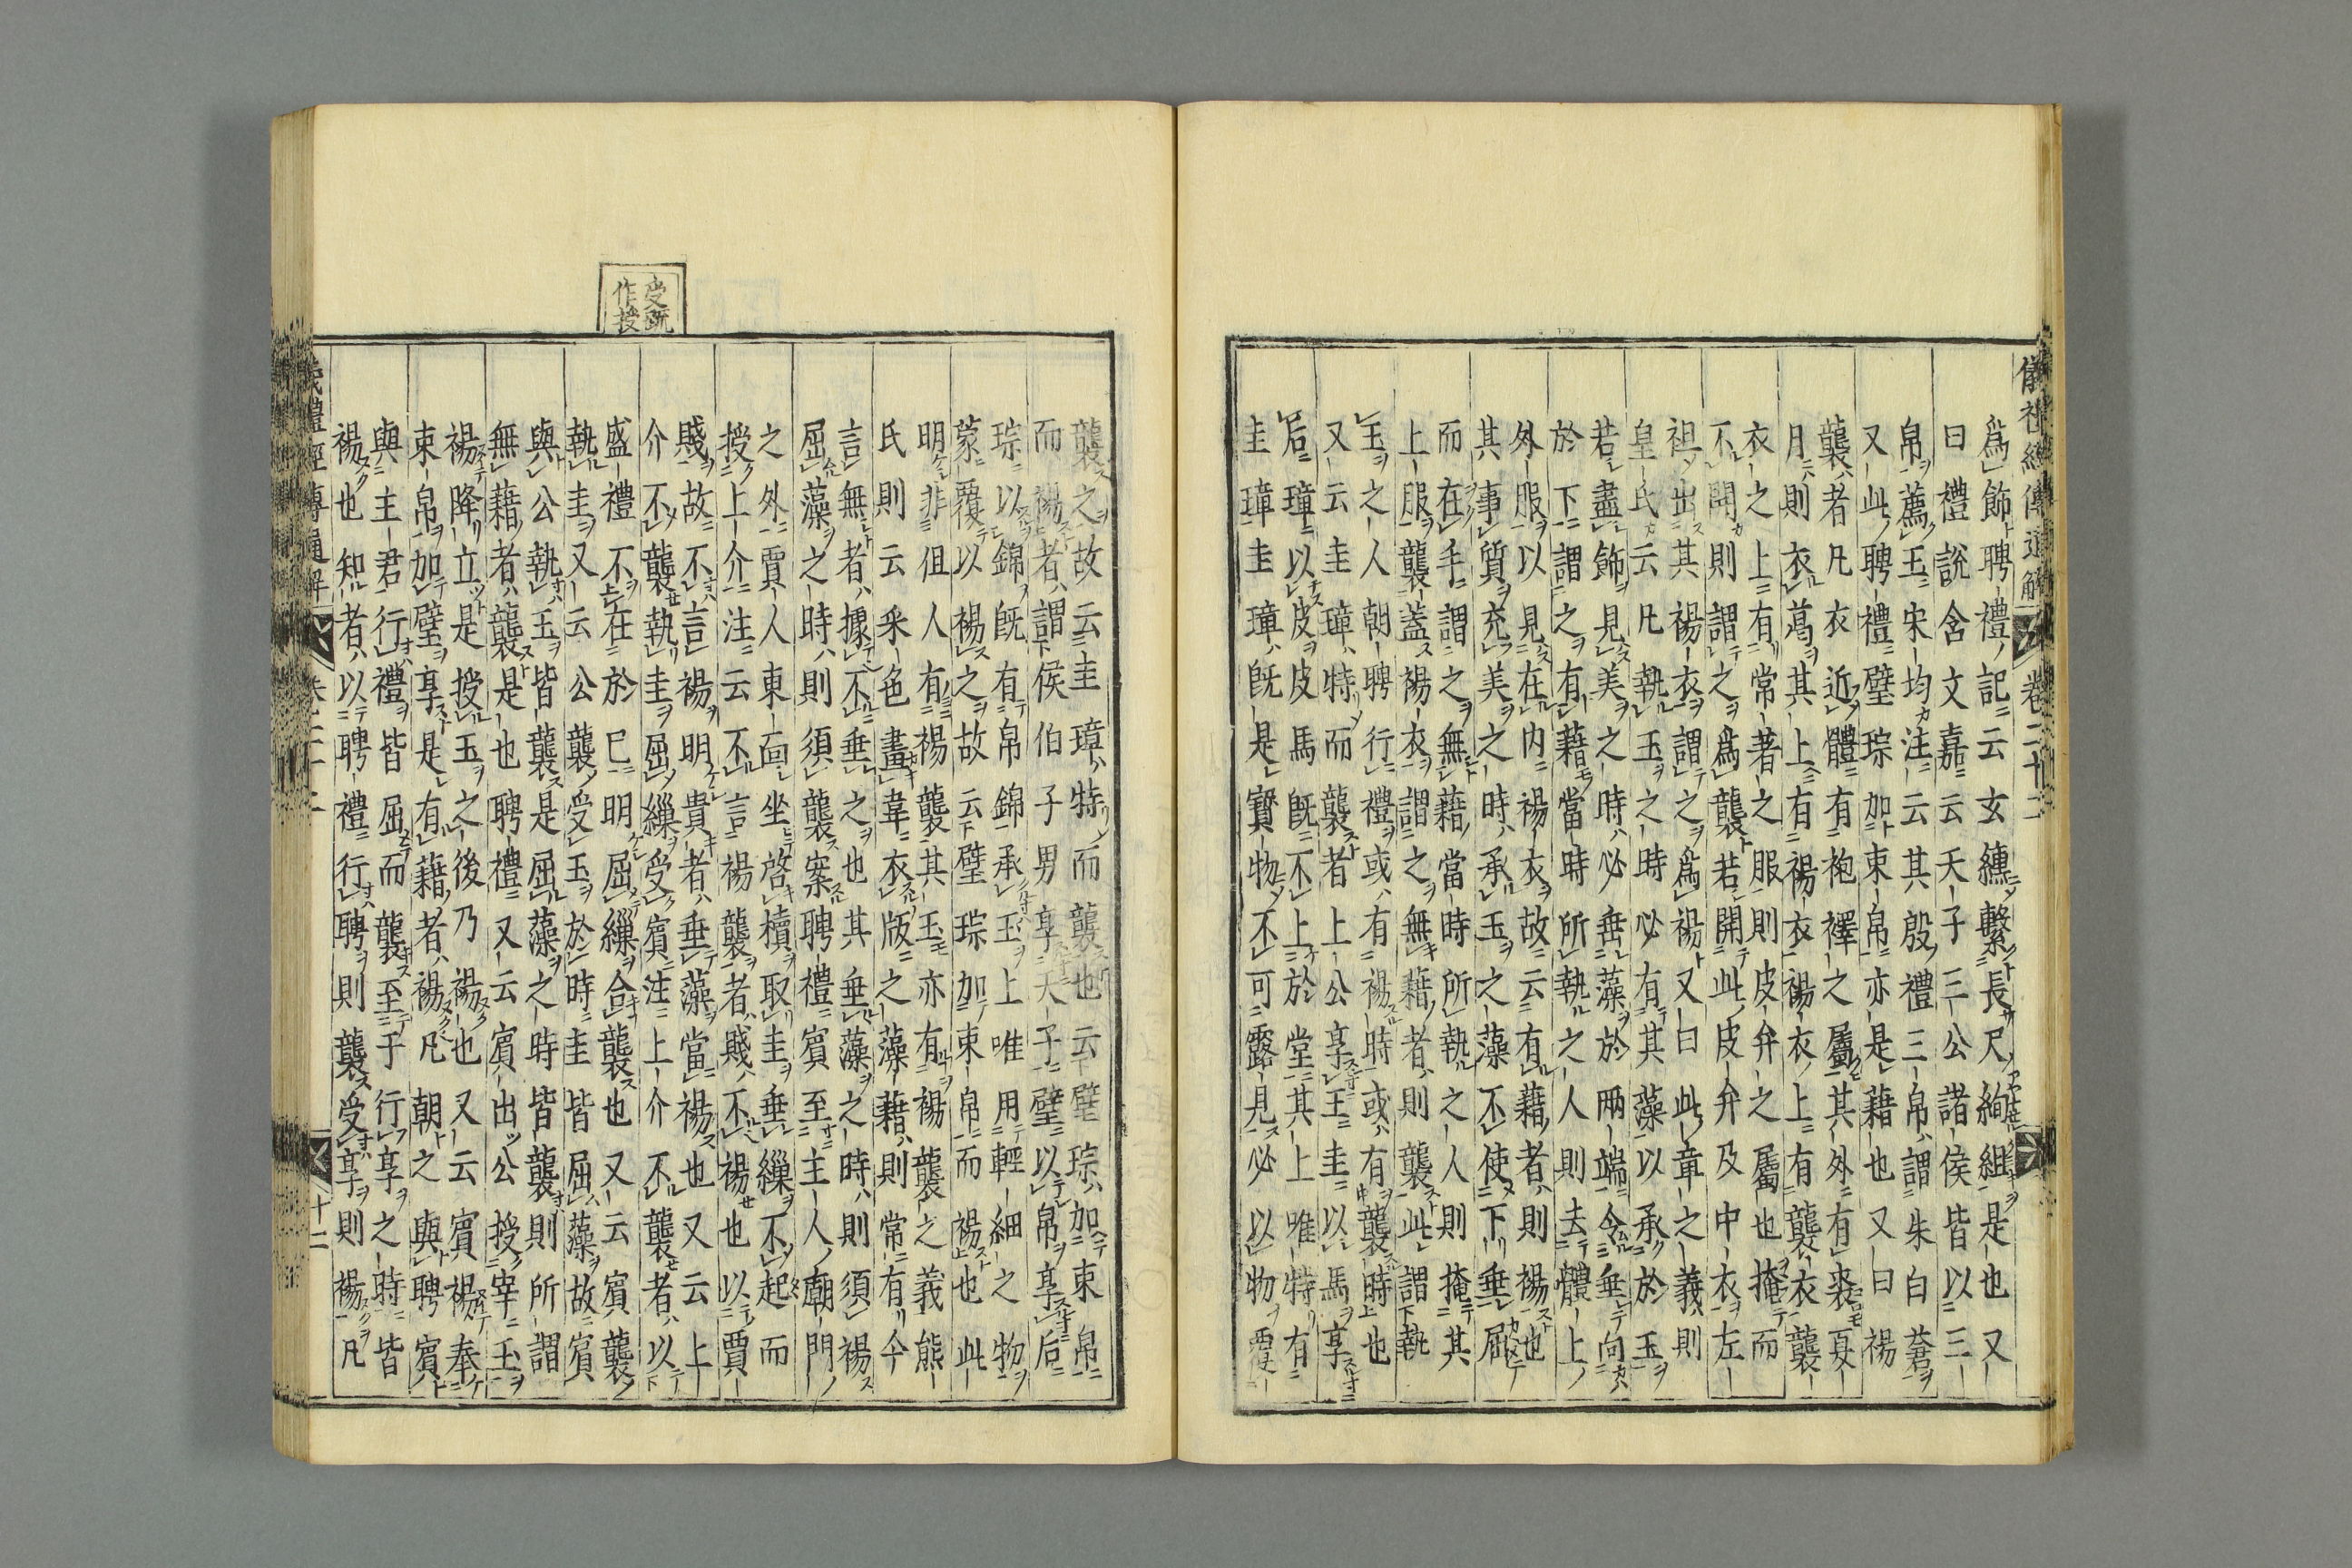 儀禮經傳通解 卷二十二
爲飾聘禮記云玄纁繫長尺絢組是也又
曰禮説含文嘉云天子三公諸侯皆以三
帛薦玉宋均注云其殷禮三帛謂朱白蒼
又此聘禮璧琮加束帛亦是藉也又曰裼
襲者凡衣近體有袍襗之屬其外有裘夏
月則衣葛其上有裼衣裼衣上有襲衣襲
衣之上有常著之服則皮弁之屬也掩而
不開則謂之爲襲若開此皮弁及中衣左
袒出其裼衣謂之爲裼又曰此章之義則
皇氏云凡執玉之時必有其藻以承於玉
若盡飾見美之時必垂藻於兩端令垂向
於下謂之有藉當時所執之人則去體上
外服以見在内裼衣故云有藉者則裼也
其事質充美之時承玉之藻不使下垂屈
而在手謂之無藉當時所執之人則掩其
上服襲蓋裼衣謂之無藉者則襲此謂執
玉之人朝聘行禮或有裼時或有襲時也
又云圭璋特而襲者上公享王圭以馬享
后璋以皮皮馬既不上於堂其上唯特有
圭璋圭璋既是寳物不可露見必以物覆
受疏
作授
襲之故云圭璋特而襲也云璧琮加束帛
而裼者謂侯伯子男享天子璧以帛享后
琮以錦既有帛錦承玉上唯用輕細之物
蒙覆以裼之故云璧琮加束帛而裼也此
明非但人有裼襲其玉亦有裼襲之義熊
氏則云采色畫韋衣版之藻藉則常有今
言無者據不垂之也其垂藻之時則須裼
屈藻之時則須襲案聘禮賓至主人廟門
之外賈人東面坐啓櫝取圭垂繅不起而
授上介注云不言裼襲者賤不裼也以賈
賤故不言裼明貴者垂藻當裼也又云上
介不襲執圭屈繅受賓注上介不襲者以
盛禮不在於己明屈繅合襲也又云賓襲
執圭又云公襲受玉於時圭皆屈藻故賓
與公執玉皆襲是屈藻之時皆襲則所謂
無藉者襲是也聘禮又云賓出公授宰玉
裼降立是授玉之後乃裼也又云賓裼奉
束帛加璧享是有藉者裼凡朝之與聘賓
與主君行禮皆屈而襲至于行享之時皆
裼也知者以聘禮行聘則襲受享則裼凡